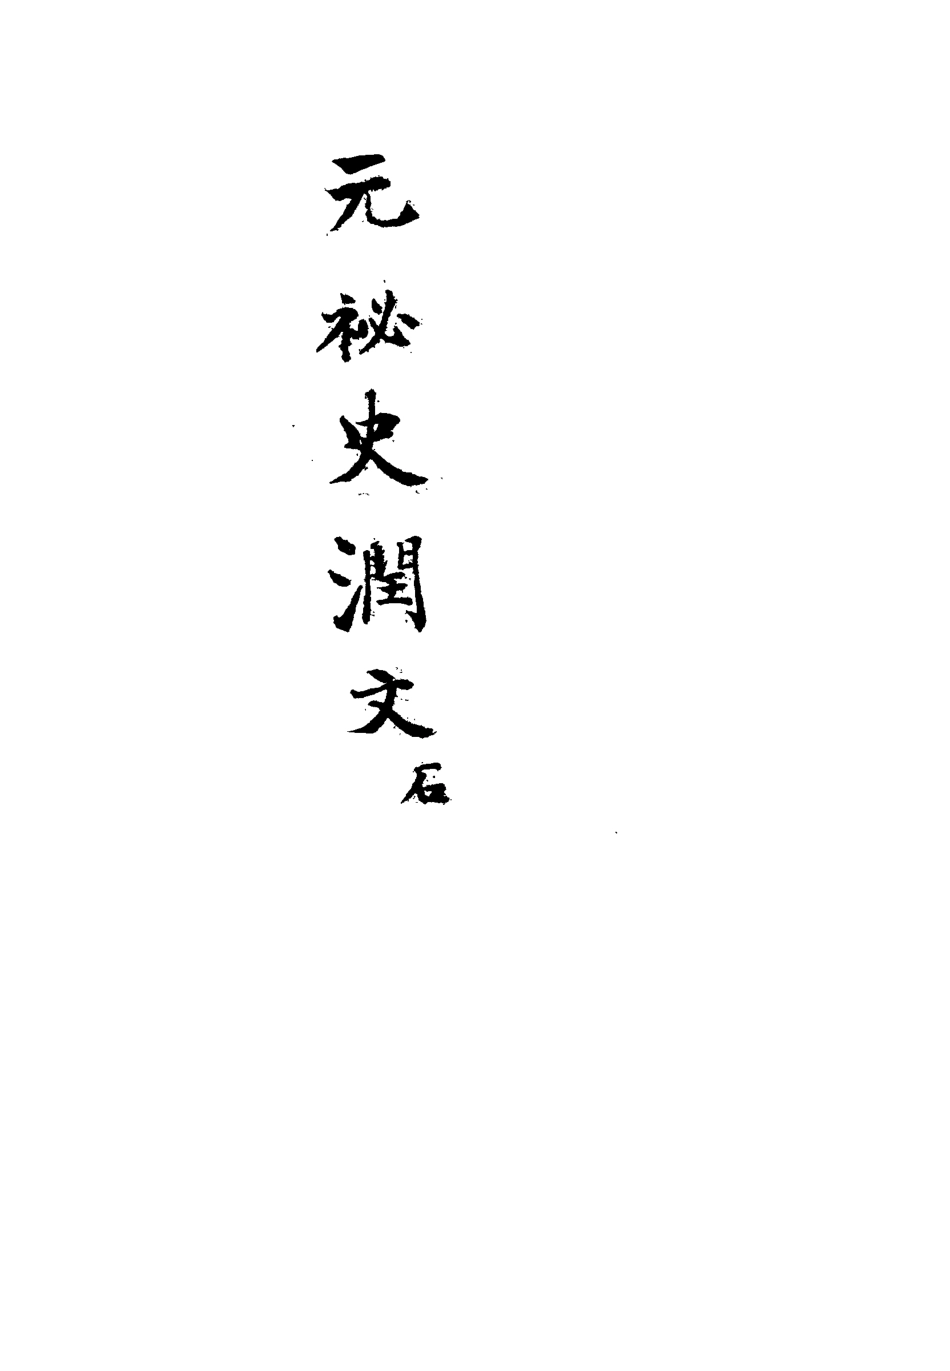 元祕史潤文
石